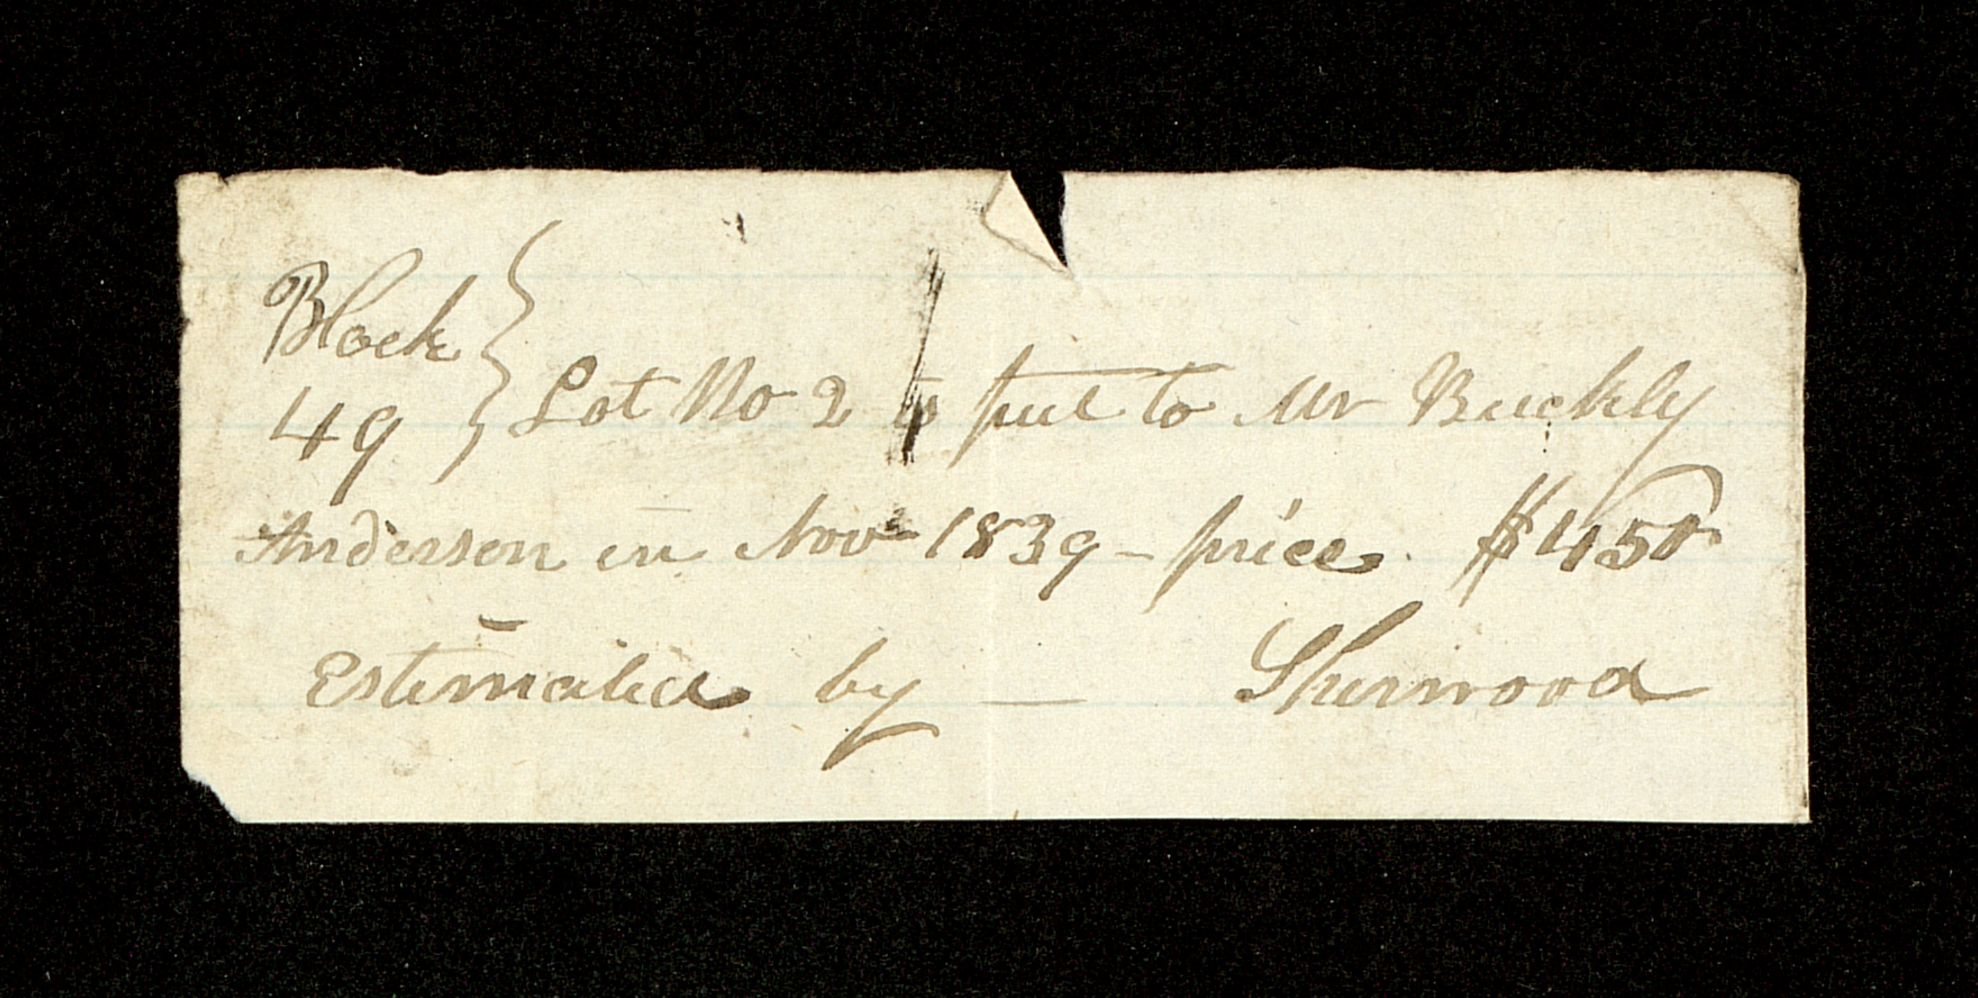 Block
49 } Lot No 2 put to Mr Buckly
Anderson in Nov 1839 - price $450
Estimated by — Sherwood